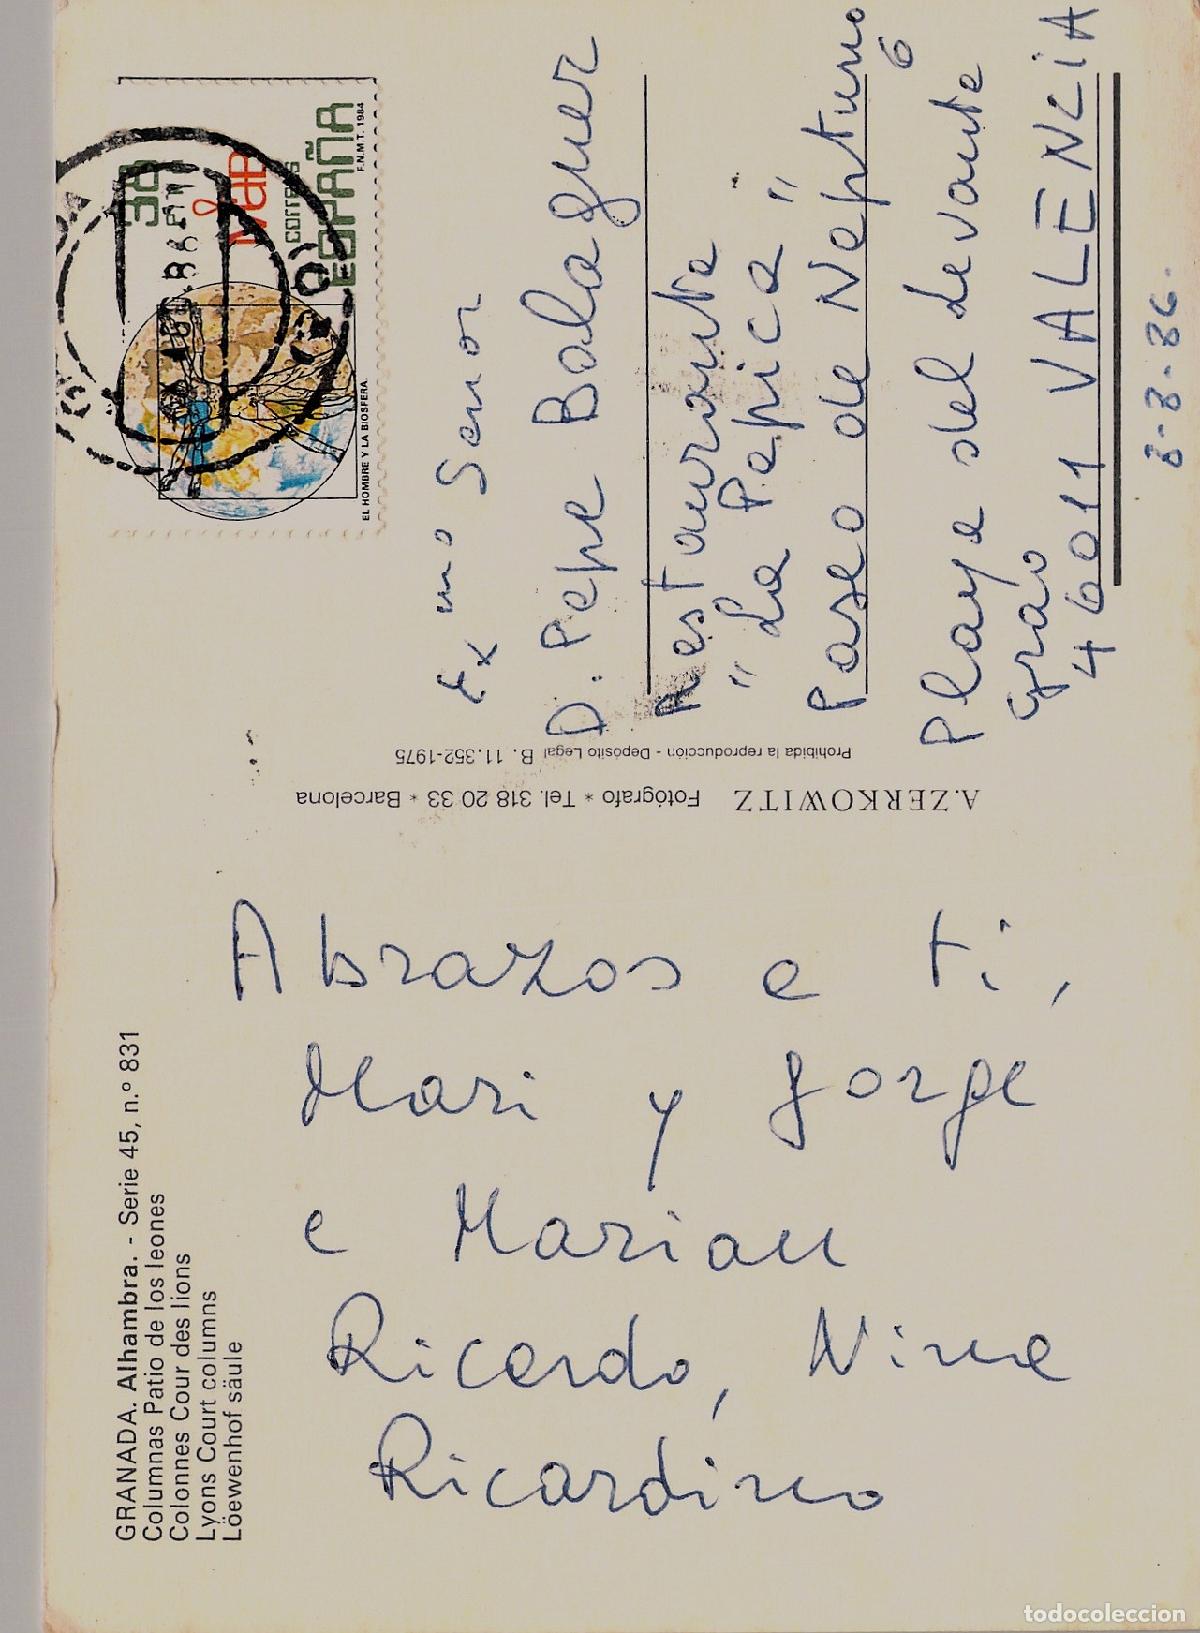 GRANADA. Alhambra. - Serie 45, n.º 831
Columnas Patio de los leones
Colonnes Cour des lions
Lyons Court columns
Löewenhof säule
Abrazos a ti,
Mari y Jorge
e Marian
Ricardo, Nina
Ricardino
A.ZERKOWITZ Fotógrafo * Tel. 318 20 33 * Barcelona
Prohibida la reproducción - Depósito Legal B. 11.352-1975
38
MdB
correos
ESPAÑA
F.N.M.T. 1984
EL HOMBRE Y LA BIOSFERA.
Exmo Senor
D. Pepe Balaguer
Restaurante
"La Pepica"
Paseo de Neptuno
6
Playa del Levante
Grao
46011 VALENCIA
8-8-86.
todocoleccion